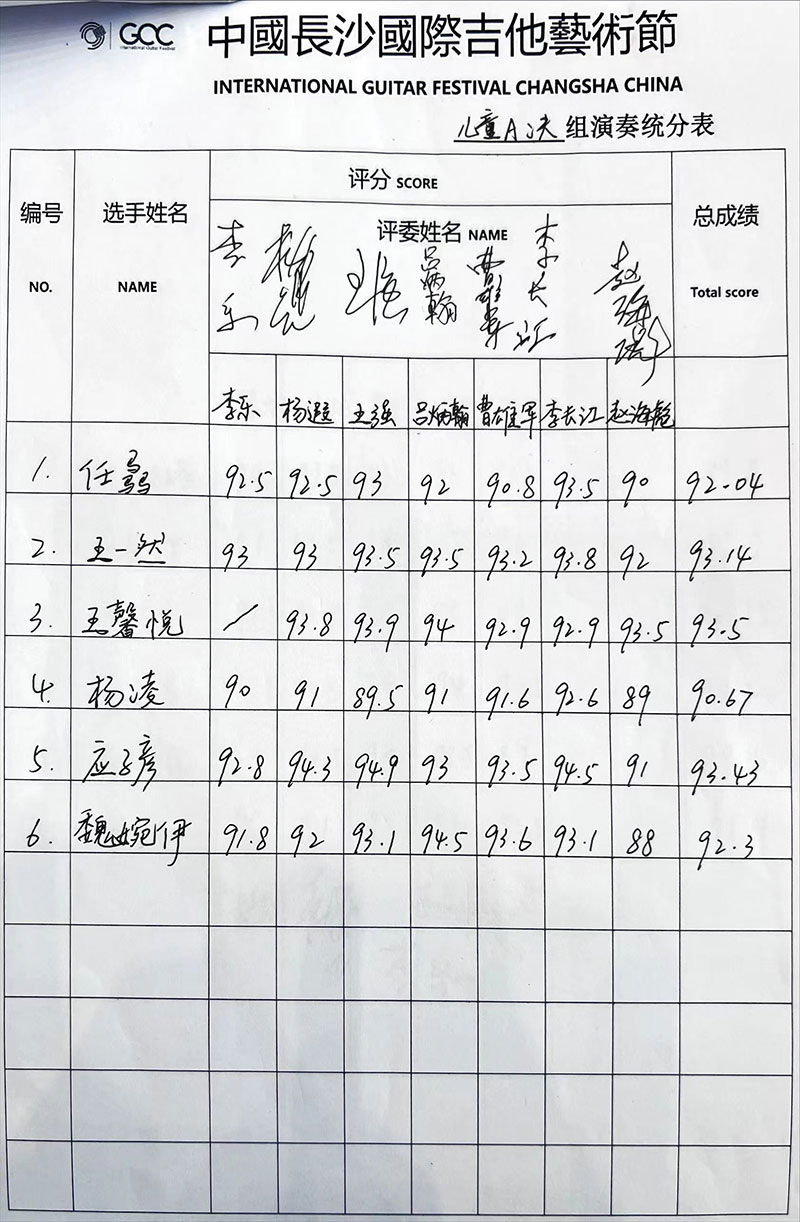 GCC
International Guitar Festival
中國長沙國際吉他藝術節
INTERNATIONAL GUITAR FESTIVAL CHANGSHA CHINA
儿童A决 组演奏统分表
编号 NO. 选手姓名 NAME 评分 SCORE 总成绩 Total score
评委姓名 NAME
李乐 王强 吕炳翰 曹雄军 李长江
李乐 杨遐 王强 吕炳翰 曹雄军 李长江 赵海懿
1. 任骉 92.5 92.5 93 92 90.8 93.5 90 92.04
2. 王一然 93 93 93.5 93.5 93.2 93.8 92 93.14
3. 王馨悦 / 93.8 93.9 94 92.9 92.9 93.5 93.5
4. 杨凌 90 91 89.5 91 91.6 92.6 89 90.67
5. 应子彦 92.8 94.3 94.9 93 93.5 94.5 91 93.43
6. 魏婉伊 91.8 92 93.1 94.5 93.6 93.1 88 92.3